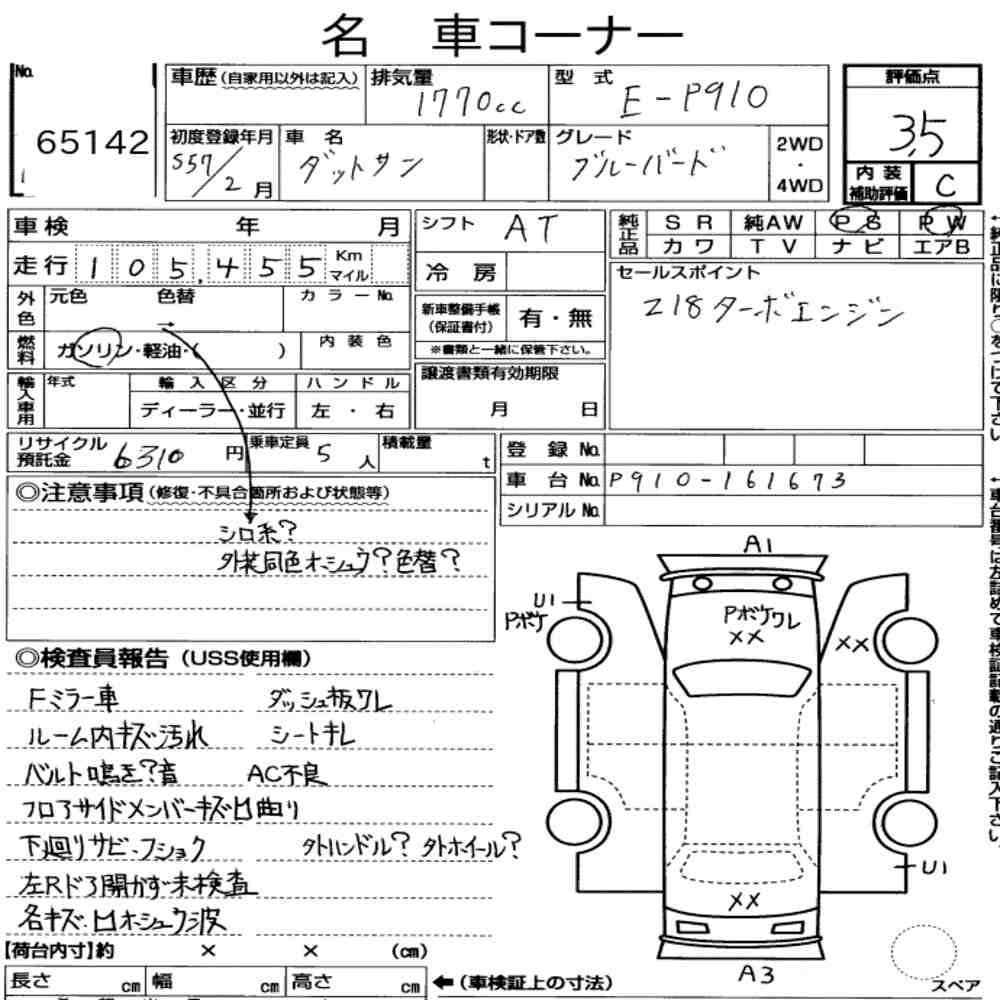 名 車コーナー
No.
65142
車歴 (自家用以外は記入)
排気量
1770cc
型 式
E-P910
評価点
3.5
初度登録年月
S57/2月
車 名
ダットサン
形状・ドア数
グレード
ブルーバード
2WD
・
4WD
内 装
補助評価
C
車検 年 月
シフト AT
純正品
SR 純AW PS PW
カワ TV ナビ エアB
走行 105,455 Km マイル
冷 房
セールスポイント
Z18ターボエンジン
外色 元色 色替 カラーNo.
新車整備手帳
(保証書付)
有・無
※書類と一緒に保管下さい。
燃料 ガソリン・軽油・( )
内 装 色
輸入車用 年式 輸 入 区 分 ハ ン ド ル
ディーラー・並行 左 ・ 右
譲渡書類有効期限
月 日
リサイクル
預託金
6310円
乗車定員 5人
積載量 t
登 録 No.
車 台 No. P910-161673
シリアル No.
◎注意事項 (修復・不具合箇所および状態等)
シロ系?
外装同色オシュウ?色替?
◎検査員報告 (USS使用欄)
Fミラー車 ダッシュ板ワレ
ルーム内キズ・汚れ シートキレ
バルト鳴き?音 AC不良
フロアサイドメンバーキズ凹曲り
下廻りサビ・フショク タトハンドル? タトホイール?
左Rドア開かず未検査
名キズ・凹オシュウ波
A1
U1
Pボケ
Pボケワレ
××
××
U1
××
A3
スペア
【荷台内寸】約 × × (cm)
長さ cm 幅 cm 高さ cm
←(車検証上の寸法)
←純正品に限り○をつけて下さい。
←車台番号は左詰めで車検証記載の通りご記入下さい。